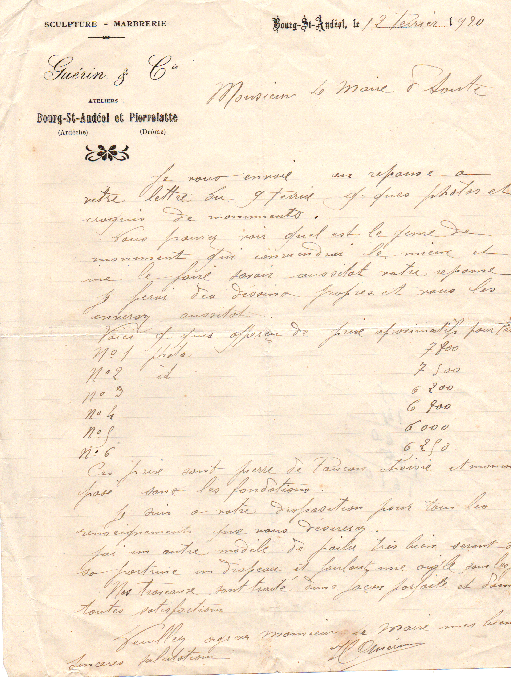 SCULPTURE - MARBRERIE
Bourg-St-Andéol, le 12 février 1920
Guérin & Cie
Monsieur le Maire d'
ATELIERS
Bourg-St-Andéol et Pierrelatte
(Ardèche) (Drôme)
Je vous envoie en reponse a
votre lettre du 9 février q. ques photos et
croquis de monuments.
Vous pourrez voir quel est le genre de
monument qui conviendrai le mieux et
me le faire savoir aussitot votre reponse
je ferai des dessins propres et vous les
enverrez aussitot
Voici q. ques aperçu de prix aproximatifs pour
No 1 photo 7 900
No 2 id 7 500
No 3 6 200
No 4 6 900
No 5 6 000
No 6 6 250
Ces prix sont pierre de choisie et
pose sans les fondations.
Je suis a votre disposition pour tous les
renseignements que vous desirerez.
j'ai un autre modèle de poilu très bien serant
sa poitrine un drapeau et foulant une aigle sous les
Nos travaux sont traité dans façon parfaite et
toutes satisfaction
Veuillez agréer monsieur le Maire mes
sinceres salutations
Guérin